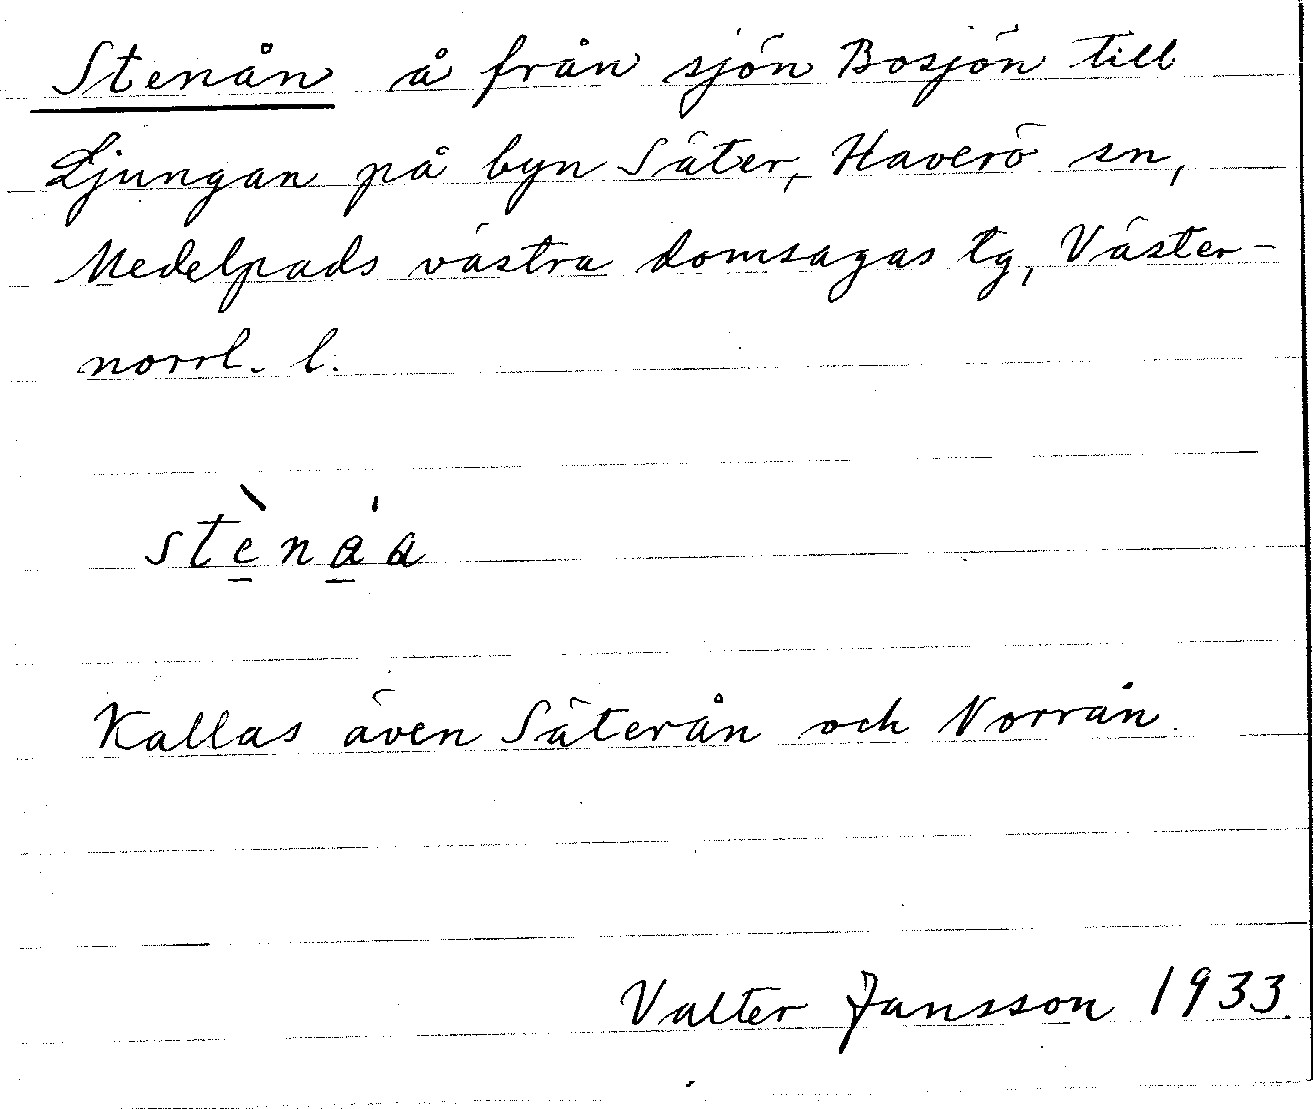 Stenån å från sjön Bosjön till
Ljungan på byn Säter, Haverö sn,
Medelpads västra domsagas tg, Väster-
norrl. l.
stè̱ná̱a
Kallas även Säterån och Norrån.
Valter Jansson 1933.